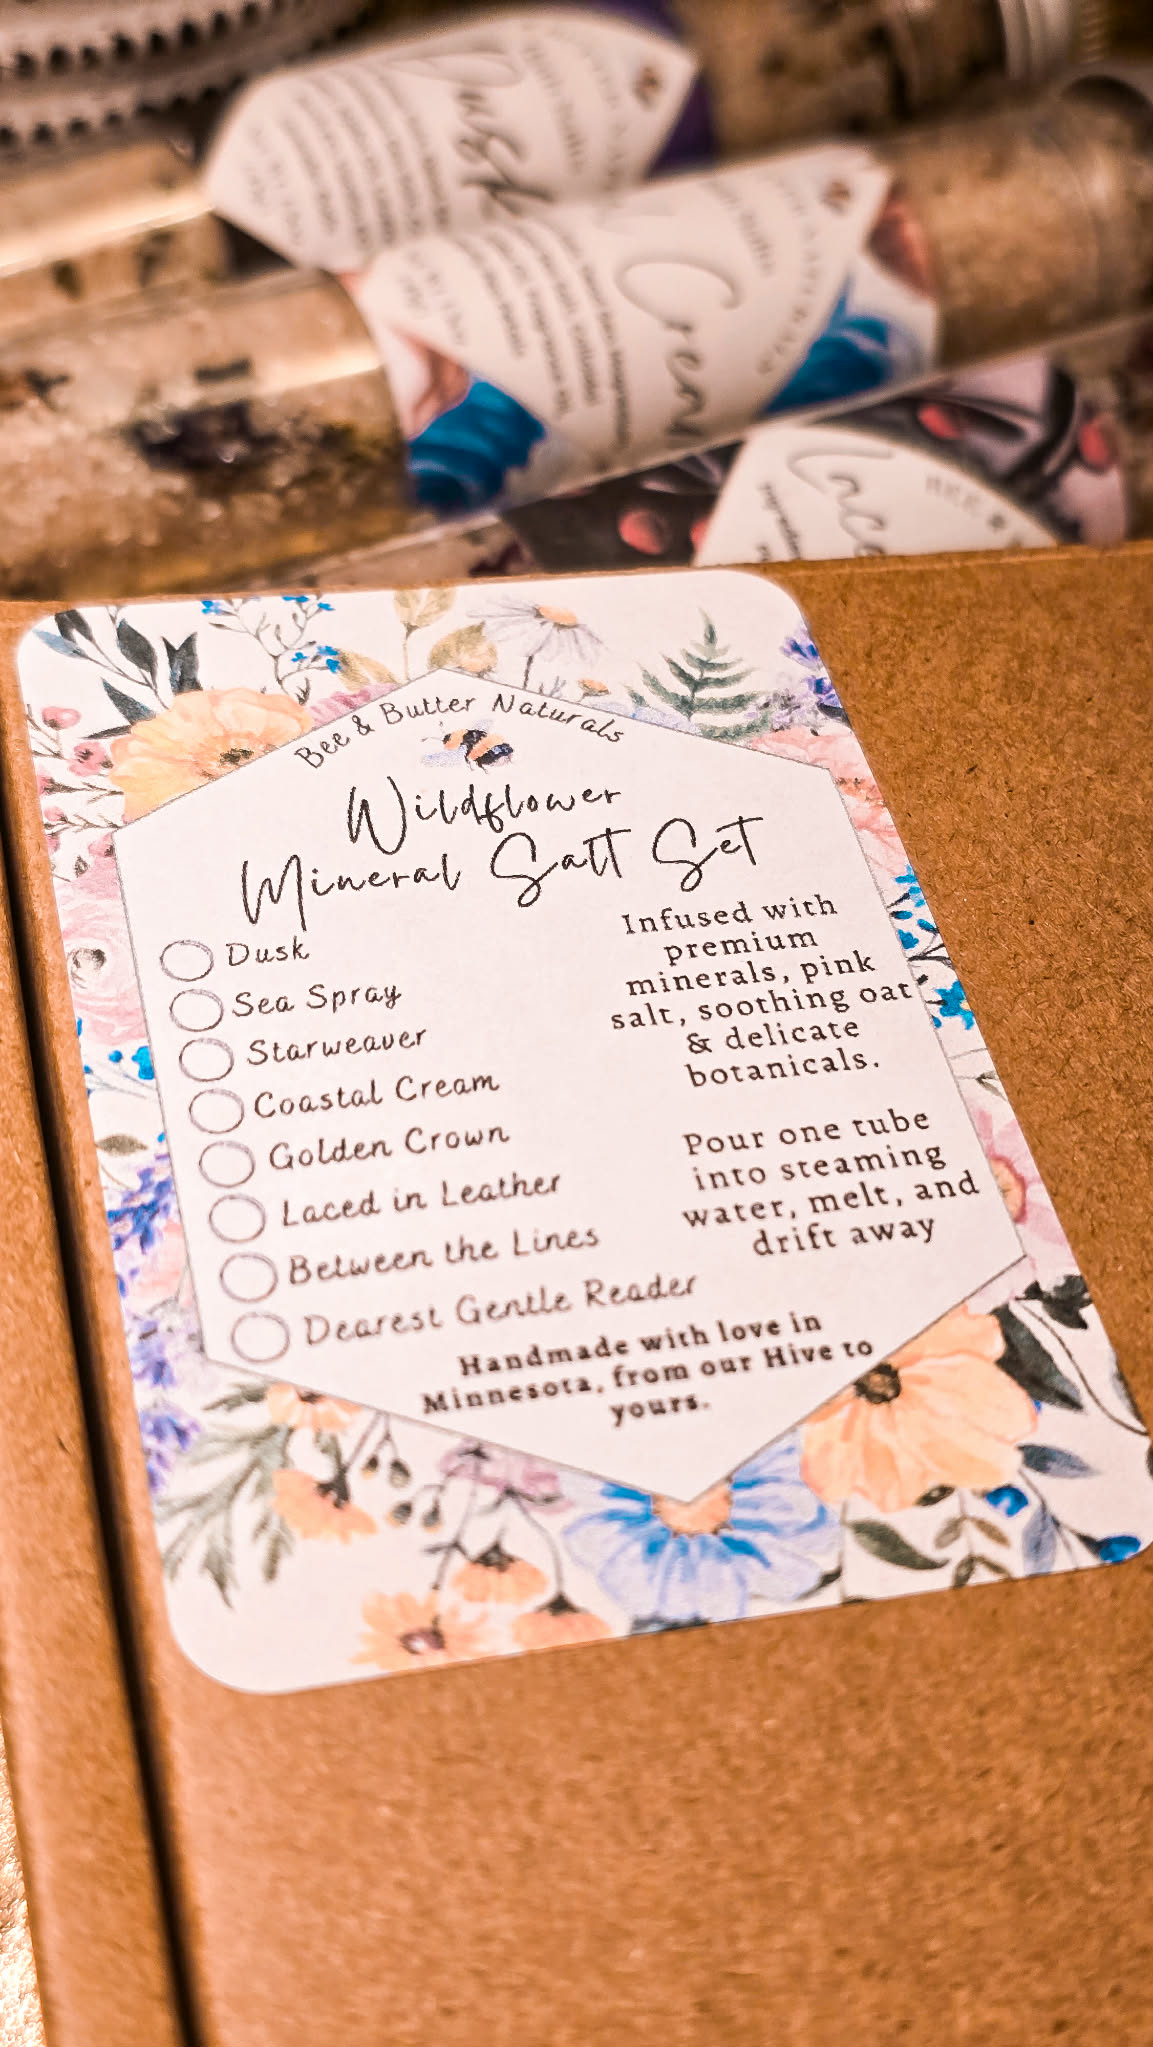 Dusk
Cream
Bee & Butter Naturals
Wildflower
Mineral Salt Set
Dusk
Sea Spray
Starweaver
Coastal Cream
Golden Crown
Laced in Leather
Between the Lines
Dearest Gentle Reader
Infused with
premium
minerals, pink
salt, soothing oat
& delicate
botanicals.
Pour one tube
into steaming
water, melt, and
drift away
Handmade with love in
Minnesota, from our Hive to
yours.